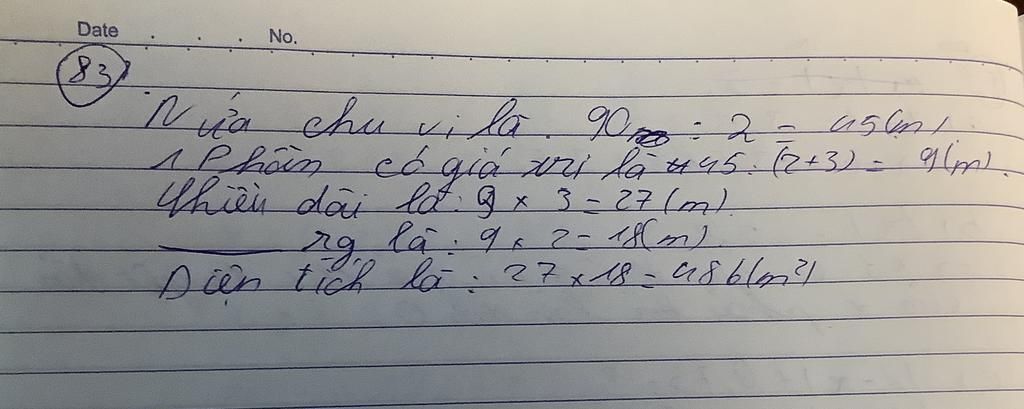 Date . . . No.
83
Nửa chu vi là. 90 : 2 = 45(m)
1 Phần có giá trị là 45 : (2+3) = 9(m).
Chiều dài là : 9 x 3 = 27 (m).
______ rg là : 9 x 2 = 18(m)
Diện tích là : 27 x 18 = 486(m²)